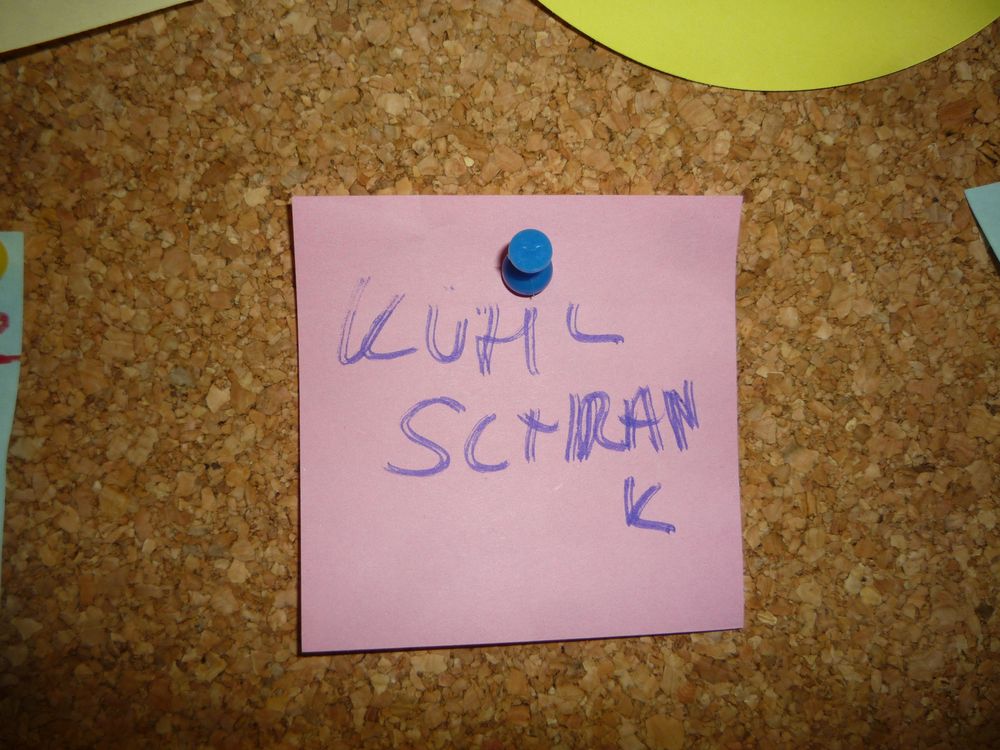 KÜHL
SCHRAN
K